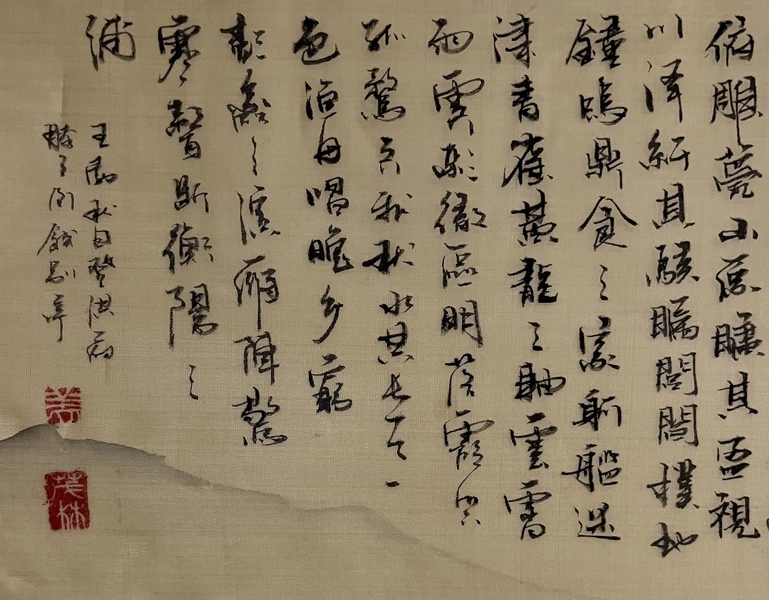 俯雕甍山原曠其盈視
川澤紆其駭矚閭閻撲地
鐘鳴鼎食之家舸艦迷
津青雀黃龍之舳雲銷
雨霽彩徹區明落霞與
孤鶩齊飛秋水共長天一
色漁舟唱晚響窮
彭蠡之濱雁陣驚
寒聲斷衡陽之
浦
王勃秋日登洪府
滕王閣餞別序
姜
茂林